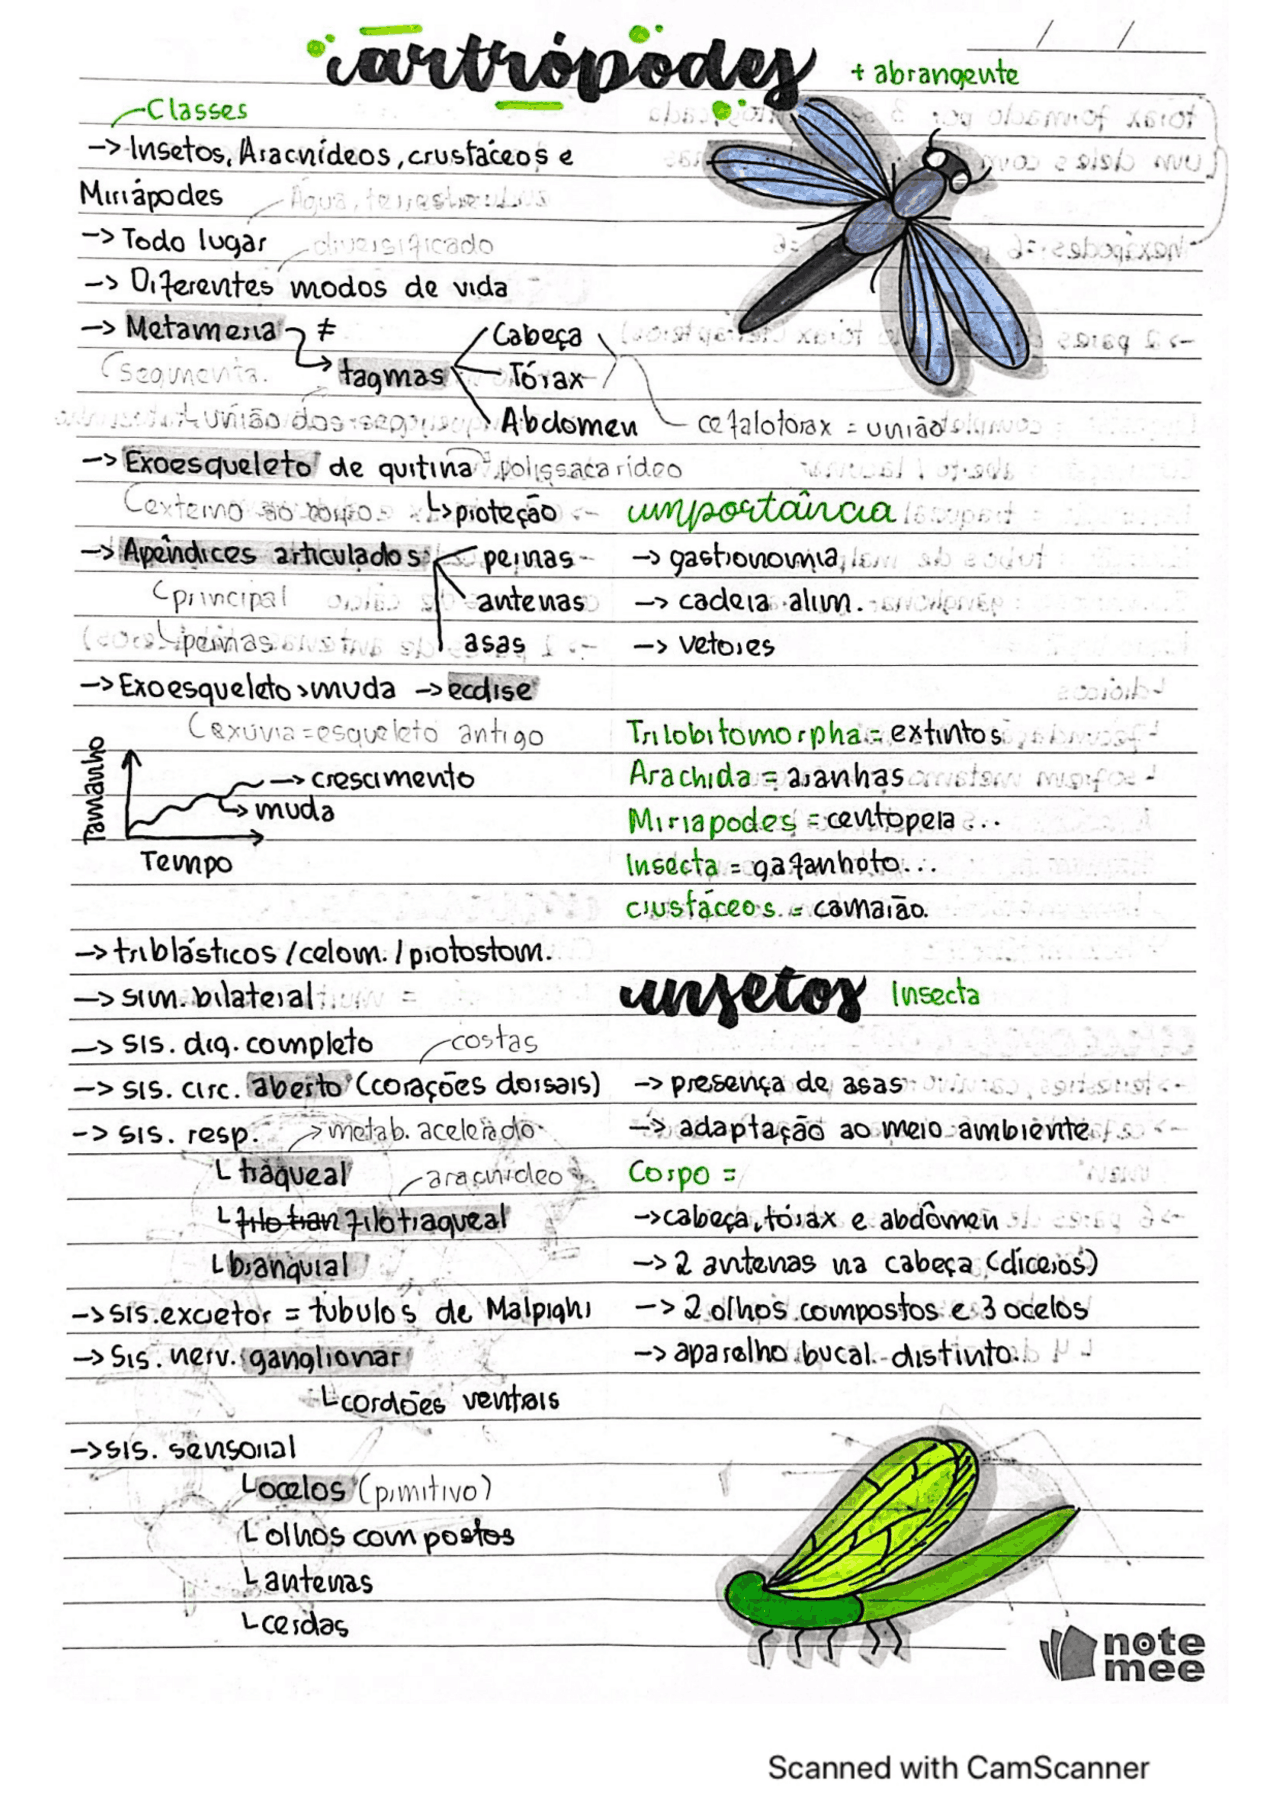 artrópodes
+ abrangente
Classes
-> Insetos, Aracnídeos, crustáceos e
Miriápodes
Água, terrestre
-> Todo lugar
diversificado
-> Diferentes modos de vida
-> Metameria ≠
(segmenta.
tagmas
Cabeça
Tórax
Abdomen
união dos
cefalotorax = união
-> Exoesqueleto de quitina polissacarídeo
externo ao corpo
proteção
-> Apêndices articulados
pernas
antenas
asas
principal
pernas
-> Exoesqueleto > muda -> ecdise
(exúvia = esqueleto antigo
Tamanho
-> crescimento
-> muda
Tempo
-> triblásticos / celom. / protostom.
-> sim. bilateral
-> sis. dig. completo
costas
-> sis. circ. aberto (corações dorsais)
-> sis. resp.
-> metab. acelerado
traqueal
aracnídeo
filotraqueal
branquial
-> sis. excretor = túbulos de Malpighi
-> Sis. nerv. ganglionar
cordões ventrais
-> sis. sensorial
ocelos (primitivo)
olhos compostos
antenas
cerdas
importância
-> gastronomia
-> cadeia alim.
-> vetores
Trilobitomorpha = extintos
Arachida = aranhas
Miriapodes = centopeia...
Insecta = gafanhoto...
crustáceos. = camarão.
insetos Insecta
-> presença de asas
-> adaptação ao meio ambiente
Corpo =
-> cabeça, tórax e abdômen
-> 2 antenas na cabeça (díceros)
-> 2 olhos compostos e 3 ocelos
-> aparelho bucal distinto.
note
mee
Scanned with CamScanner